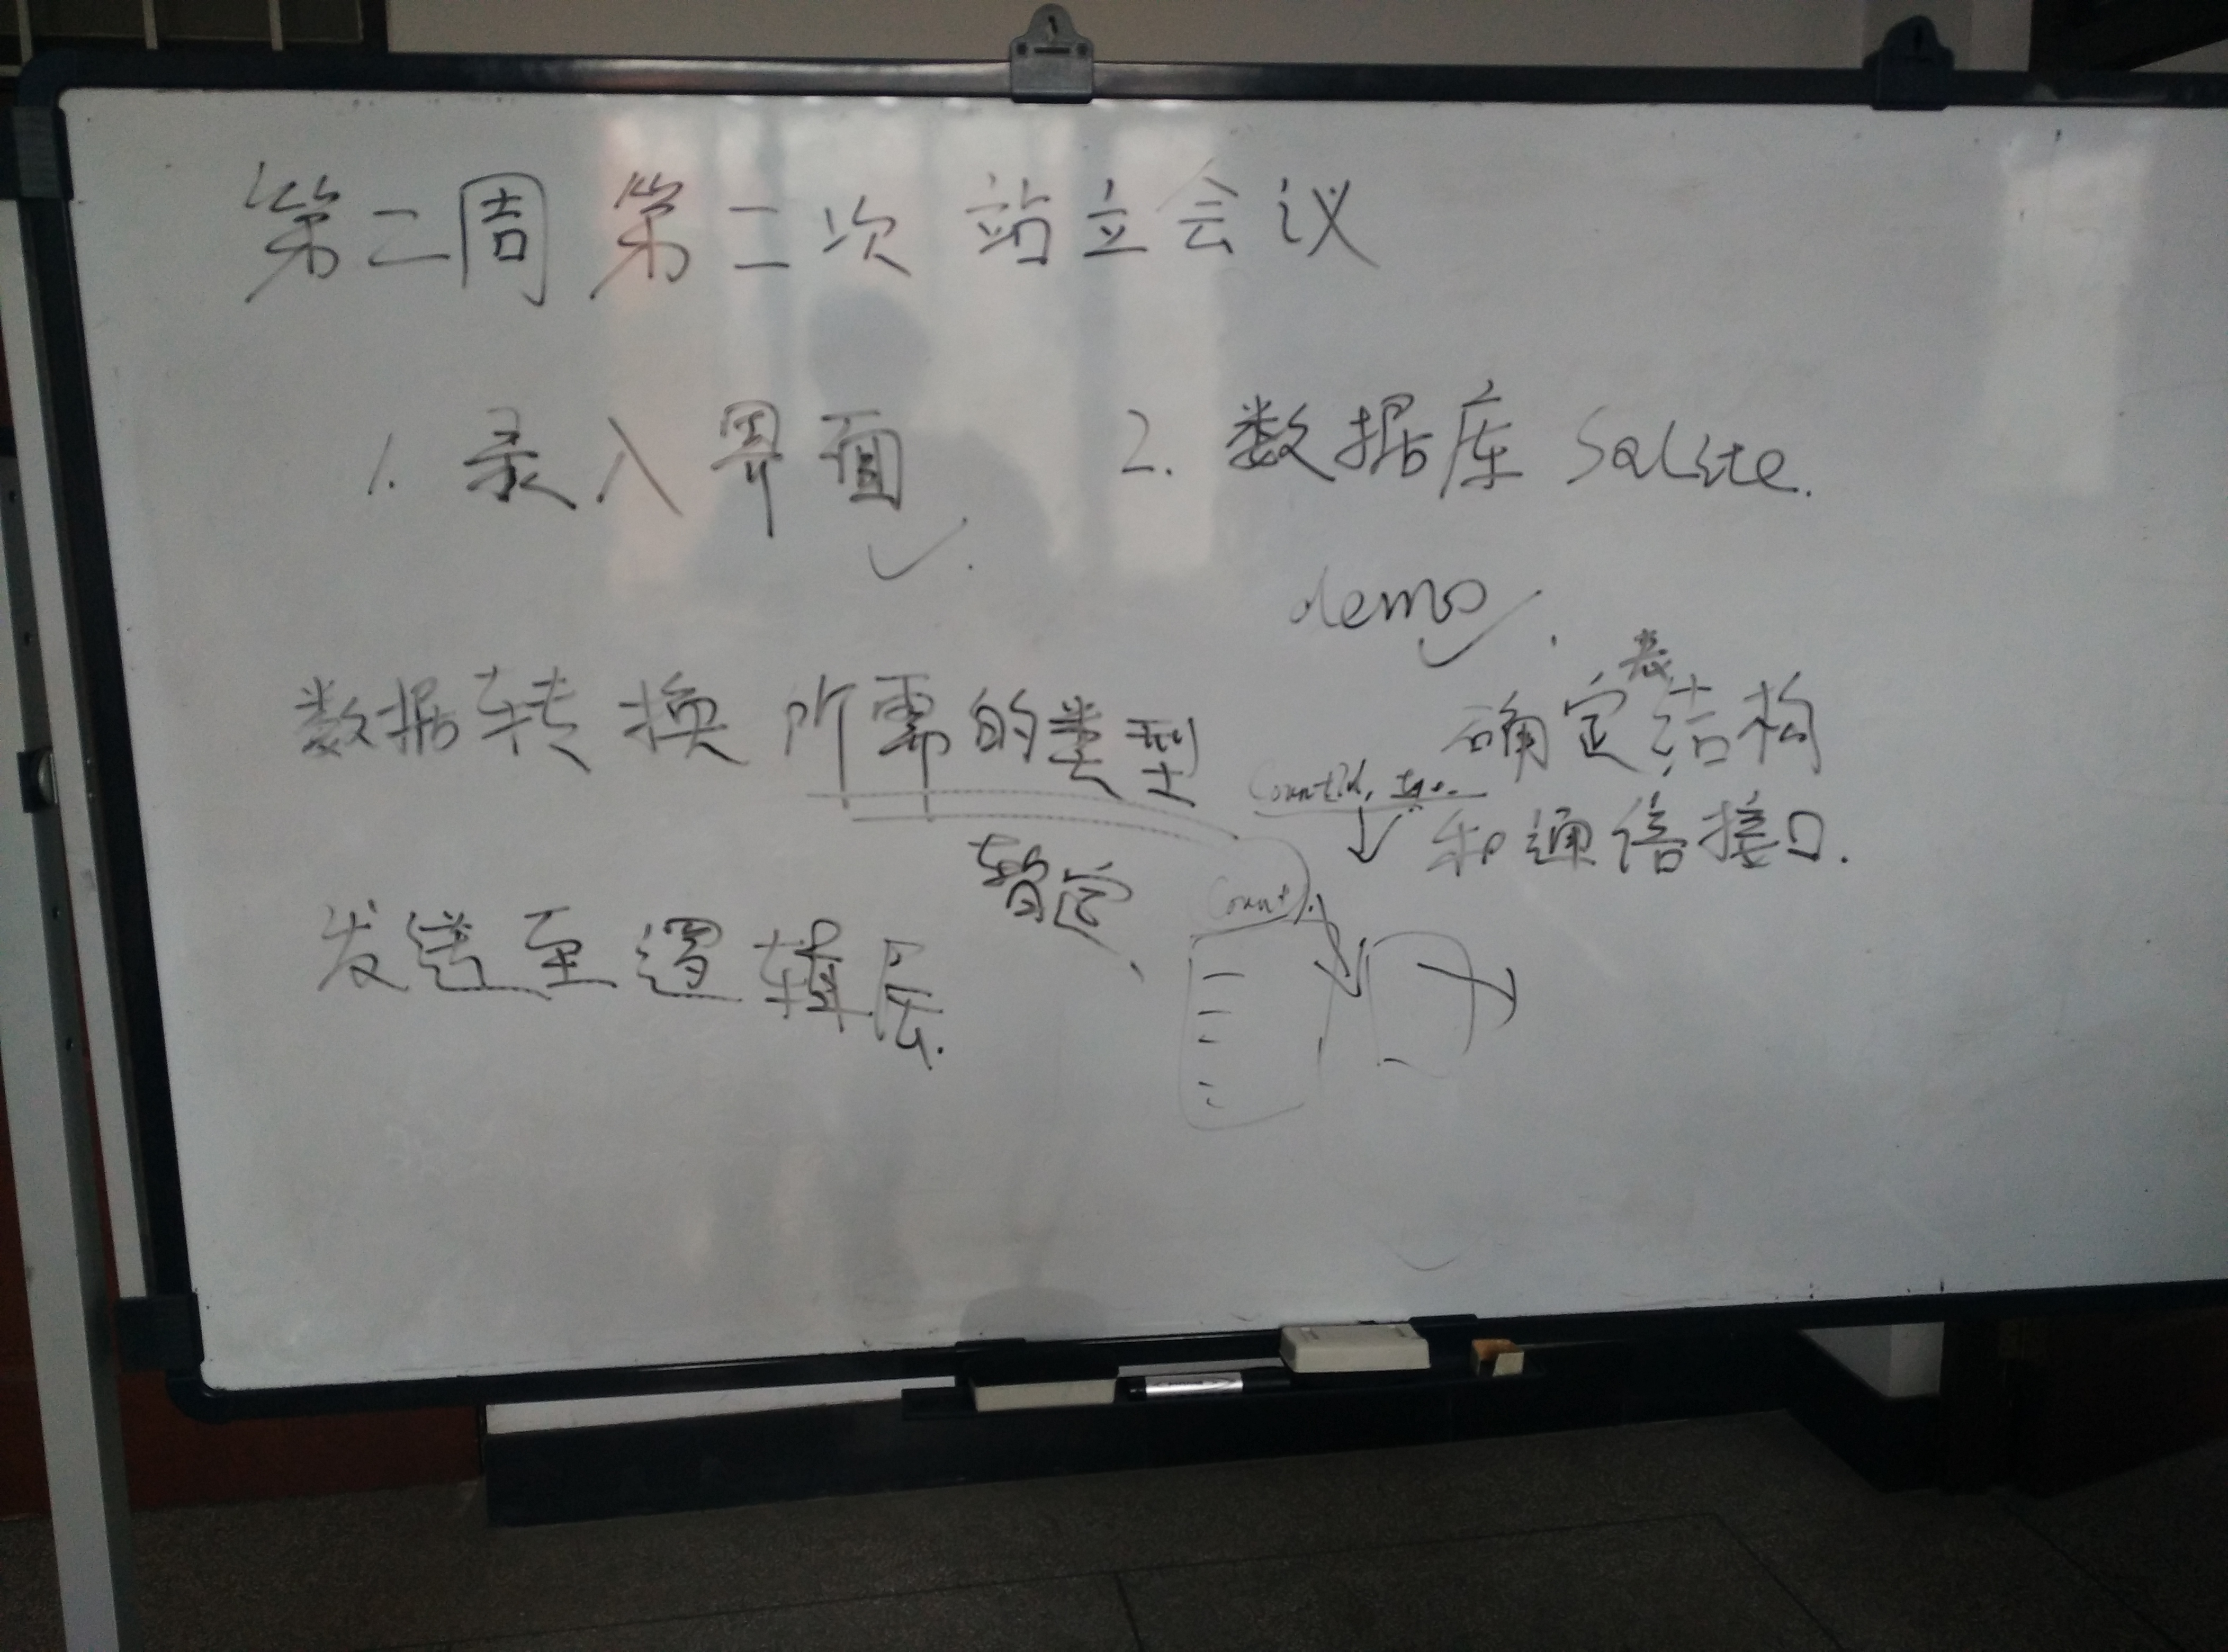 第二周 第二次 站立会议
1. 录入界面
2. 数据库 SQLite.
demo
数据转换所需的类型
表
确定结构
和通信接口.
暂定
Count
发送至逻辑层.